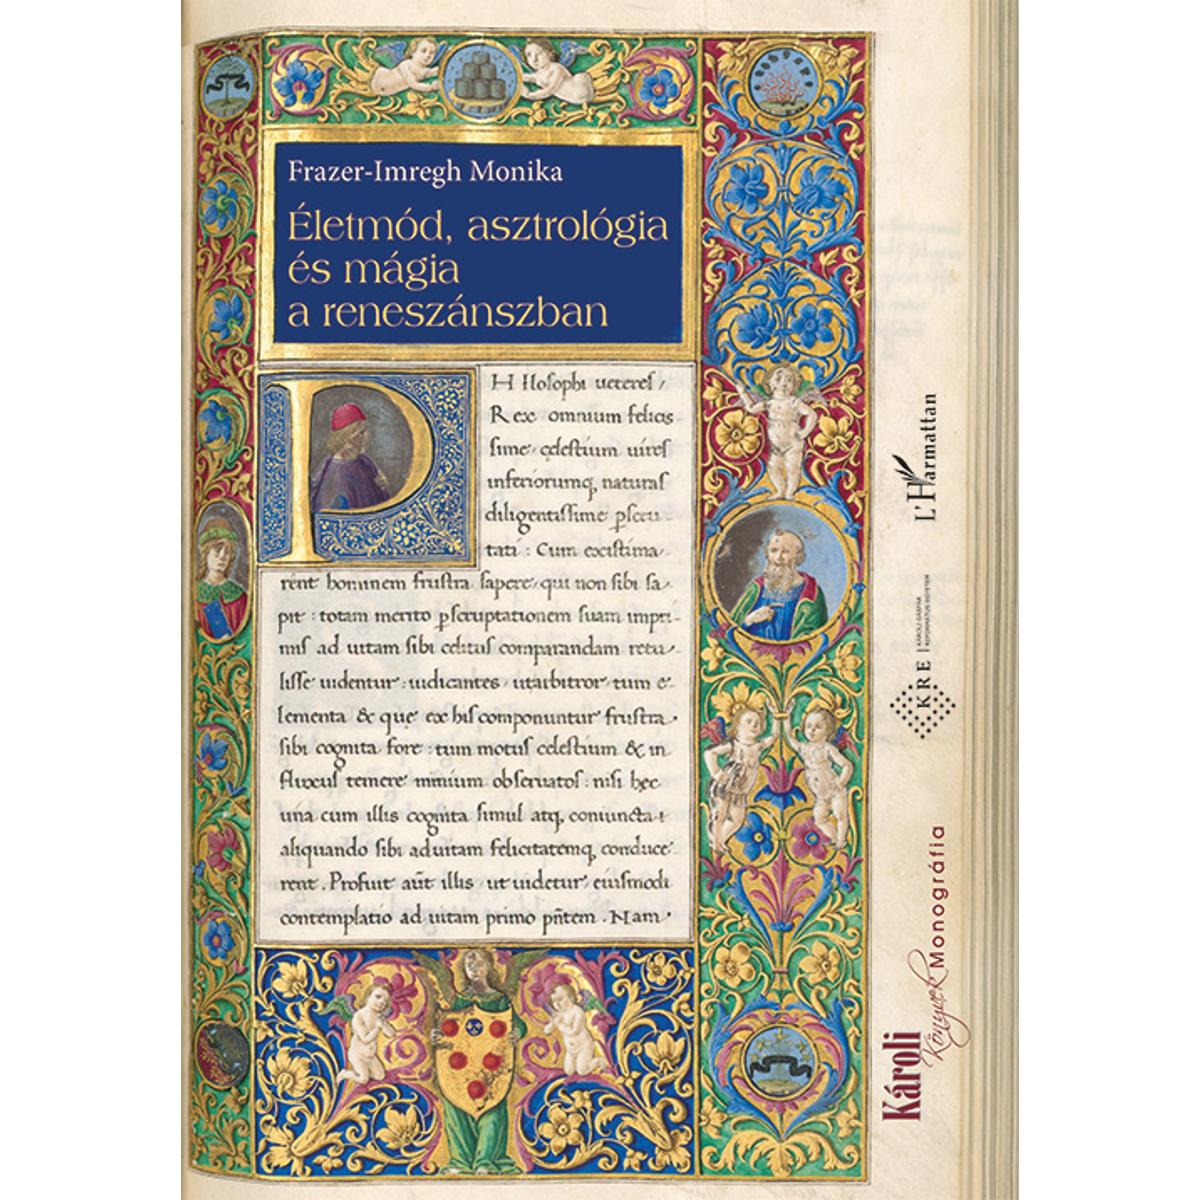 Frazer-Imregh Monika
Életmód, asztrológia
és mágia
a reneszánszban
PHIlosophi ueteres,
Rex omnium felicis
sime, cęlestium uires
inferiorumq, naturas
diligentissime pscru
tati: Cum existima
rent hominem frustra sapere, qui non sibi sa
pit: totam merito pscruptationem suam impri
mis ad uitam sibi celitus comparandam retu
lisse uidentur: iudicantes, ut arbitror tum e
lementa & quę ex his componuntur frustra
sibi cognita fore: tum motus celestium & in
fluxus temere nimium obseruatos: nisi hęc
una cum illis cognita simul atq, coniuncta
aliquando sibi ad uitam felicitatemq, conduce
rent. Profuit aūt illis, ut uidetur, eiusmodi
contemplatio ad uitam primo pñtem. Nam
L'Harmattan
KRE
KÁROLI GÁSPÁR
REFORMÁTUS EGYETEM
Károli
Könyvek
Monográfia